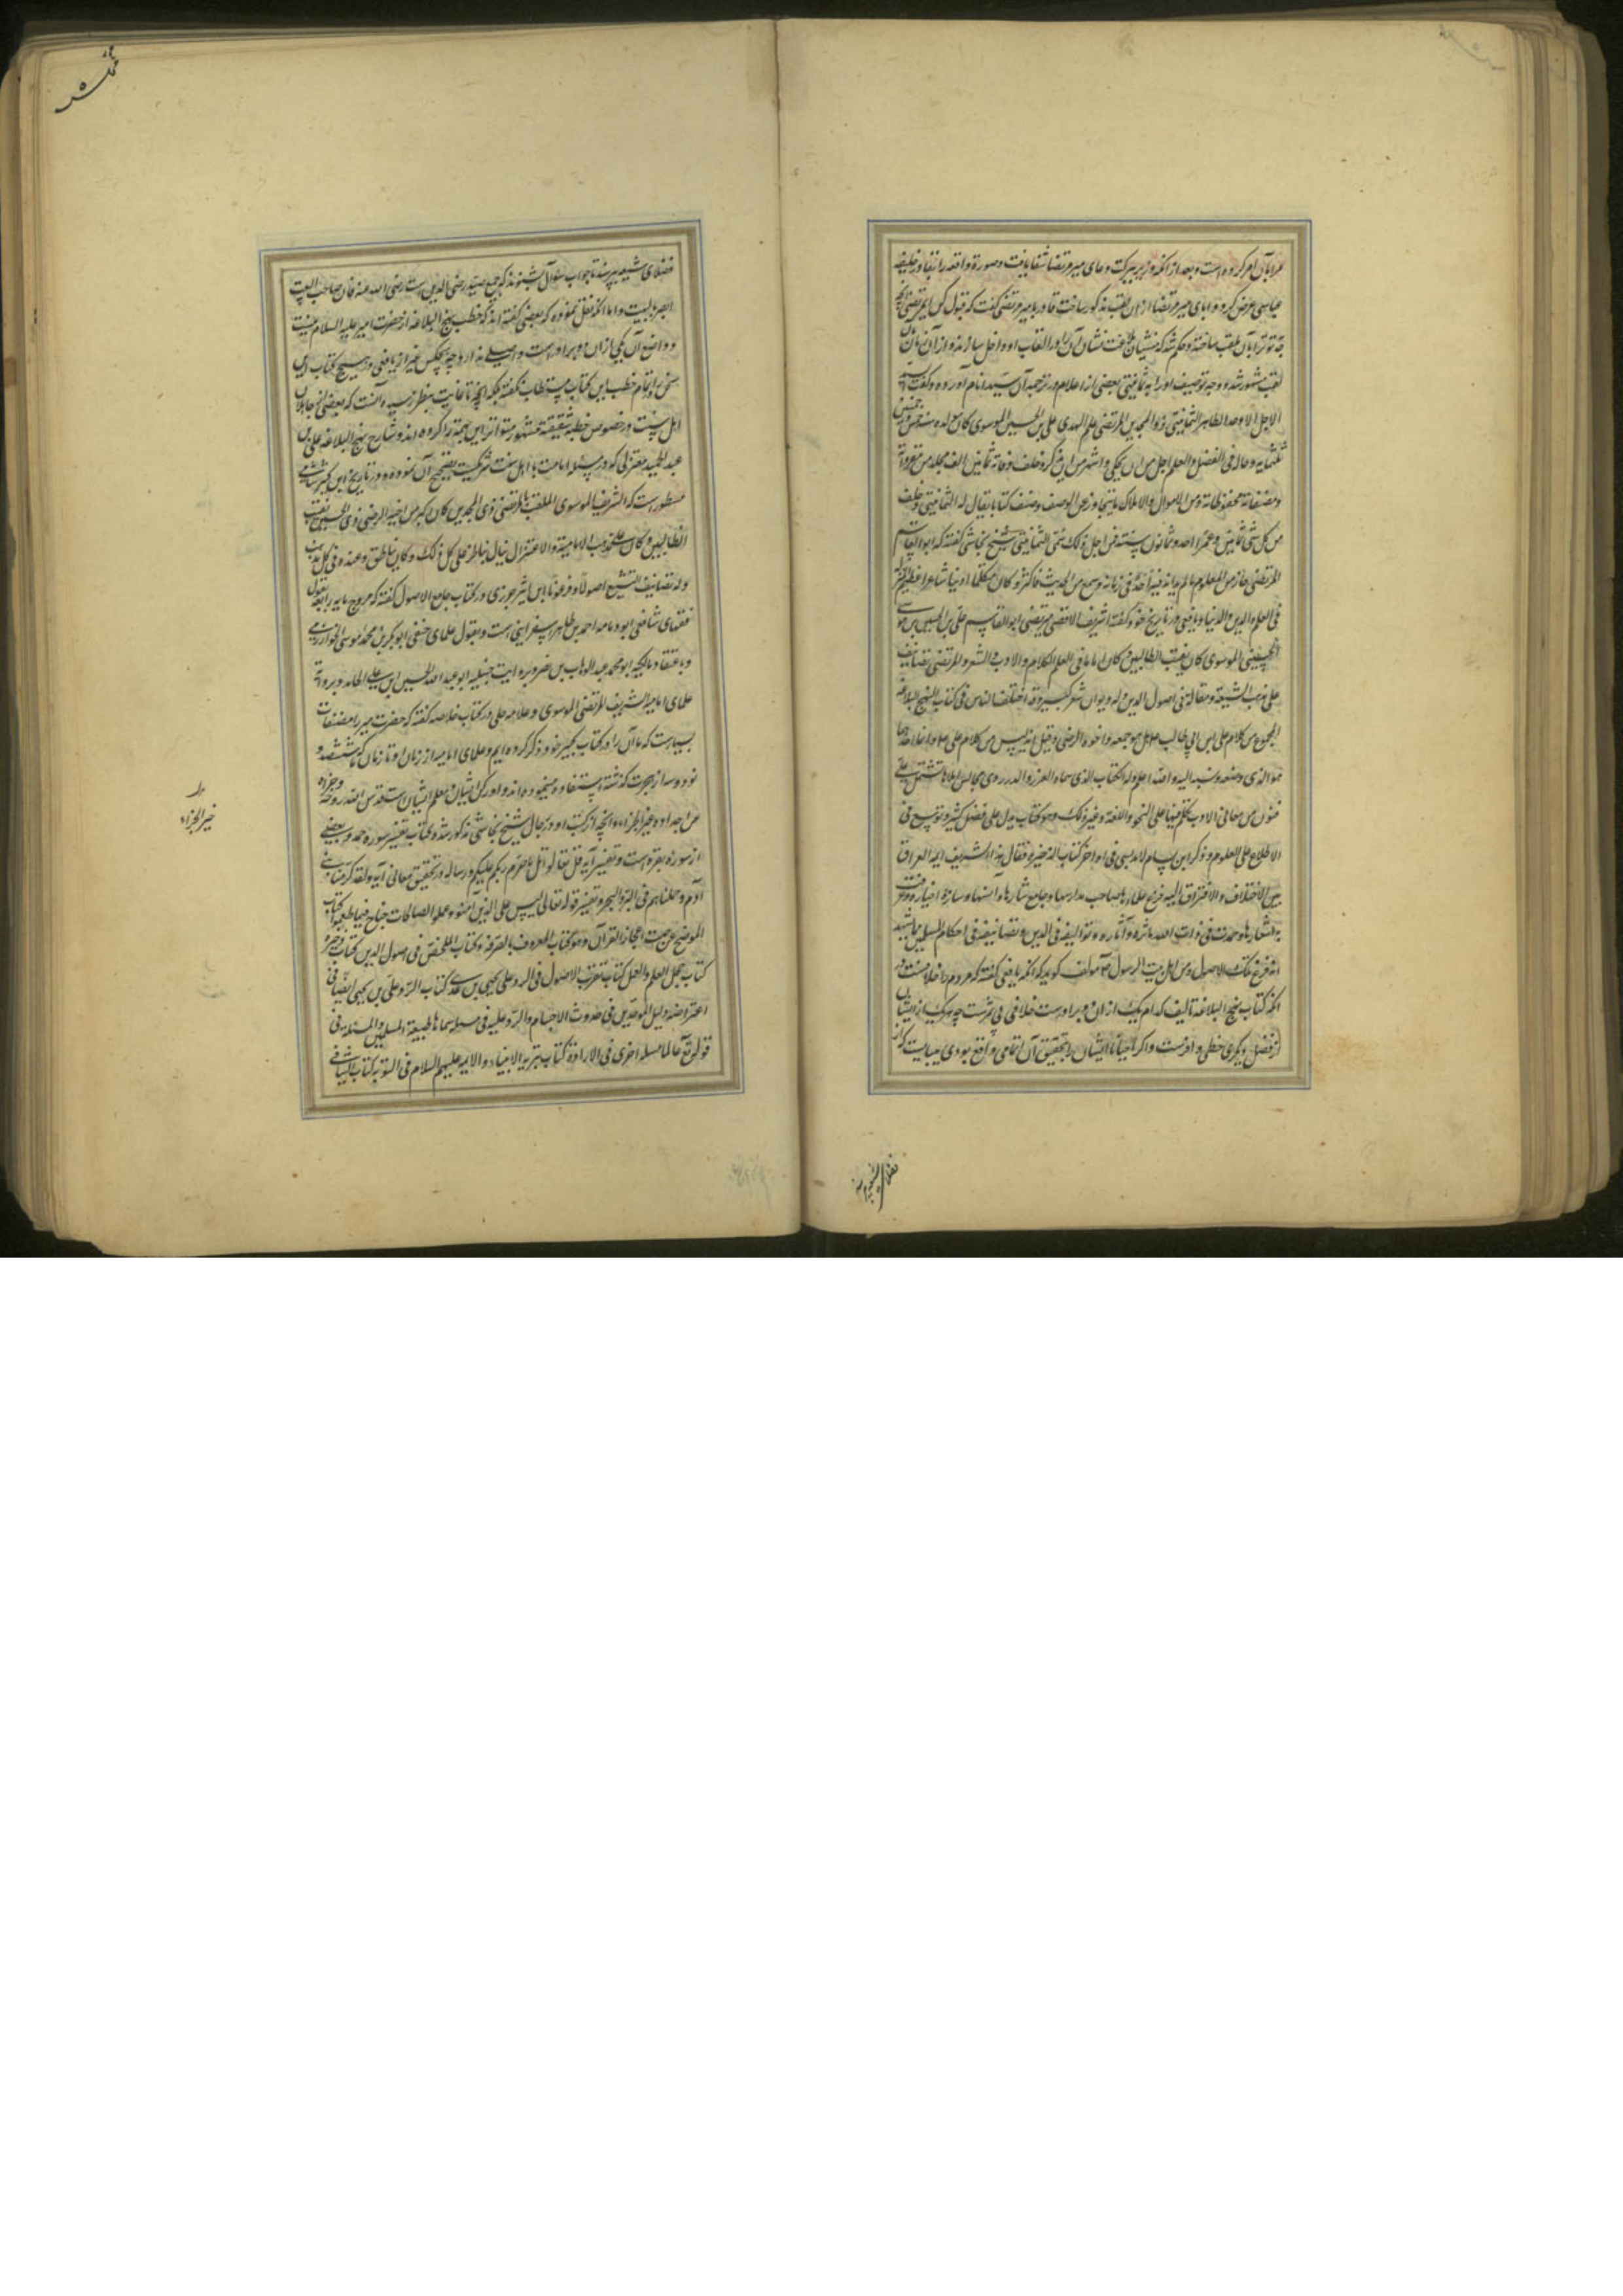 مرا بآن امر کرده است و بعد از آنکه وزیر ببرکت دعای میر مرتضا شفا یافت و صورة واقعه را بقادر خلیفه
عباسی عرض کرد و ابای میر مرتضا از ان لقب مذکور ساخت قادر با میر مرتضی گفت که قبول کن ای مرتضی آنچه
جد تو ترا بآن ملقب ساخته و حکم شد که منشیان بلاغت نشان آن را در القاب او داخل سازند و از آن زمان بآن
لقب مشهور شد و وجه توصیف او را به ثمانینی بعضی از اعلام در ترجمه آن سید انام آورده و گفت السید
الاجل الاوحد الطاهر الثمانینی ذو المجدین المرتضی علم الهدی علی بن الحسین الموسوی کان مولده سنه خمس و خمسین
ثلثمایه و حاله فی الفضل و العلم اجل من ان یحکی و اشهر من ان یذکر و خلف وفاته ثمانین الف مجلد من مقرواته
و مصنفاته و محفوظاته و من الاموال و الاملاک ما یتجاوز عن الوصف و صنف کتابا یقال له الثمانینی و خلف
من کل شی ثمانین و عمر احد و ثمانون سنة فمن اجل ذلک سمی الثمانینی شیخ نجاشی گفته که ابو القاسم
المرتضی حاز من العلوم ما لم یدانه فیه احد فی زمانه و سمع من الحدیث فاکثر و کان متکلما ادیبا شاعرا عظیم المنزلة
فی العلم و الدین و الدنیا و یافعی در تاریخ خود گفته الشریف المرتضی ابو القاسم علی بن الحسین بن موسی
الحسینی الموسوی کان نقیب الطالبیین و کان اماما فی العلم الکلام و الادب و الشعر و المرتضی تصانیف
علی مذهب الشیعة و مقالة فی اصول الدین و له دیوان شعر کبیر و قد اختلف الناس فی کتاب النهج البلاغه
المجموع من کلام علی بن ابی طالب هل هو جمعه و اخوه الرضی و قیل انه لیس من کلام علی
هو الذی وضعه و نسبه الیه و الله اعلم و له الکتاب الذی سماه الغرر و الدرر و هی مجالس املاها تشتمل علی
فنون من معانی الادب تکلم فیها علی النحو و اللغة و غیر ذلک و هو کتاب یدل علی فضل کثیر و توسع فی
الاطلاع علی العلوم و ذکر ابن بسام الاندلسی فی اواخر کتاب الذخیره فقال هذا الشریف امام ایمه العراق
بین الاختلاف و الافتراق الیه فزع علماءها صاحب مدارسها و جامع شاردها و آنسها و سارة اخباره و عرفت
به اشعارها و حمدت فی ذات الله ماثره و آثاره و توالیفه فی الدین و تصانیفه فی احکام المسلمین مما یشهد
انه فرع تلک الاصول و من اهل بیت الرسول مولف گوید که آنکه یافعی گفته که مردم را خلافست در
آنکه کتاب نهج البلاغه تالیف کدام یک از ان دو برادرست خلافی بی ثمرست چه هر یک از ایشان
از فضل دیگری حظی وافرست و اگر احیانا ایشان را تحقیق آن اتهامی واقع بودی میبایست که از
فضلای شیعه
فضلای شیعه بپرسند تا جواب سؤال بشنوند که جمع سید رضی الدین است رضی الله عنه فان صاحب البیت
ابصر بالبیت و اما آنکه نقل نموده که بعضی گفته اند که خطب نهج البلاغه از حضرت امیر علیه السلام نیست
و واضع آن یکی از ان دو برادر است واصلی ندارد چه هیچکس غیر از یافعی در هیچ کتاب این
سخن را تمام خطب این کتاب مستطاب نگفته بلکه آنچه تا غایت بنظر رسیده آنست که بعضی از جاهلان
اهل سنت در خصوص خطبه شقشقیه مشهور متواتر این تهمت را کرده اند و شارح نهج البلاغه علی بن
عبد الحمید معتزلی که در مسئله امامت با اهل سنت شریکست تقبیح آن نموده و در تاریخ ابن کثیر شامی
مسطور است که الشریف الموسوی الملقب بالمرتضی ذی المجدین کان اکبر من اخیه الرضی ذی الحسبین نقیب
الطالبیین و کان علی مذهب الامامیة و الاعتزال یناظر علی کل ذلک و کان یناظر عنده فی کل مذهب
و له تصانیف التشیع اصولا و فروعا و ابن اثیر جزری در کتاب جامع الاصول گفته که مروج مایه رابعه بقول
فقهای شافعی ابو حامد احمد بن طاهر اسفراینی است و بقول علمای حنفی ابوبکر بن محمد موسی الخوارزمی
و باعتقاد مالکیه ابو محمد عبد الوهاب بن نصر و بروایت حنبلیه ابو عبد الله الحسین ابن علی الحامد و بروایة
علمای امامیه الشریف المرتضی الموسوی و علامه حلی در کتاب خلاصه گفته که حضرت میر را مصنفات
بسیارست که ما آن را در کتاب کبیر خود ذکر کرده ایم و علمای امامیه از زمان او تا زمان ما که ششصد و
نود و سه از هجرت گذشته استفاده مینموده اند و او رکن ایشان و معلم ایشان است قدس الله روحه و جزاه
عن اجداده خیر الجزاء و آنچه از کتب او در رجال شیخ نجاشی مذکور شده کتاب تفسیر سوره حمد و بعضی
از سوره بقره است و تفسیر آیه قل تعالوا اتل ما حرم ربکم علیکم و رساله در تحقیق معانی آیه و لقد کرمنا بنی
آدم و حملناهم فی البر و البحر و تفسیر قوله تعالی لیس علی الذین آمنوا و عملوا الصالحات جناح فیما طعموا کتاب
الموضح عن جهت اعجاز القرآن و هو کتاب المعروف بالصرفه و کتاب الملخص فی اصول الدین کتاب ذخیره
کتاب جمل العلم و العمل کتاب تقریب الاصول فی الرد علی یحیی بن عدی کتاب الرد علی بن یحیی ایضا فی
اعتراضه دلیل الموحدین فی حدوث الاجسام و الرد علیه فی مسئله سماها طبیعة المسلمین و المسئله فی
قوله تع عالما مسئله اخری فی الاراده کتاب تنزیه الانبیاء و الایمه علیهم السلام فی التوبه کتاب الشافی
خیر الجزاء